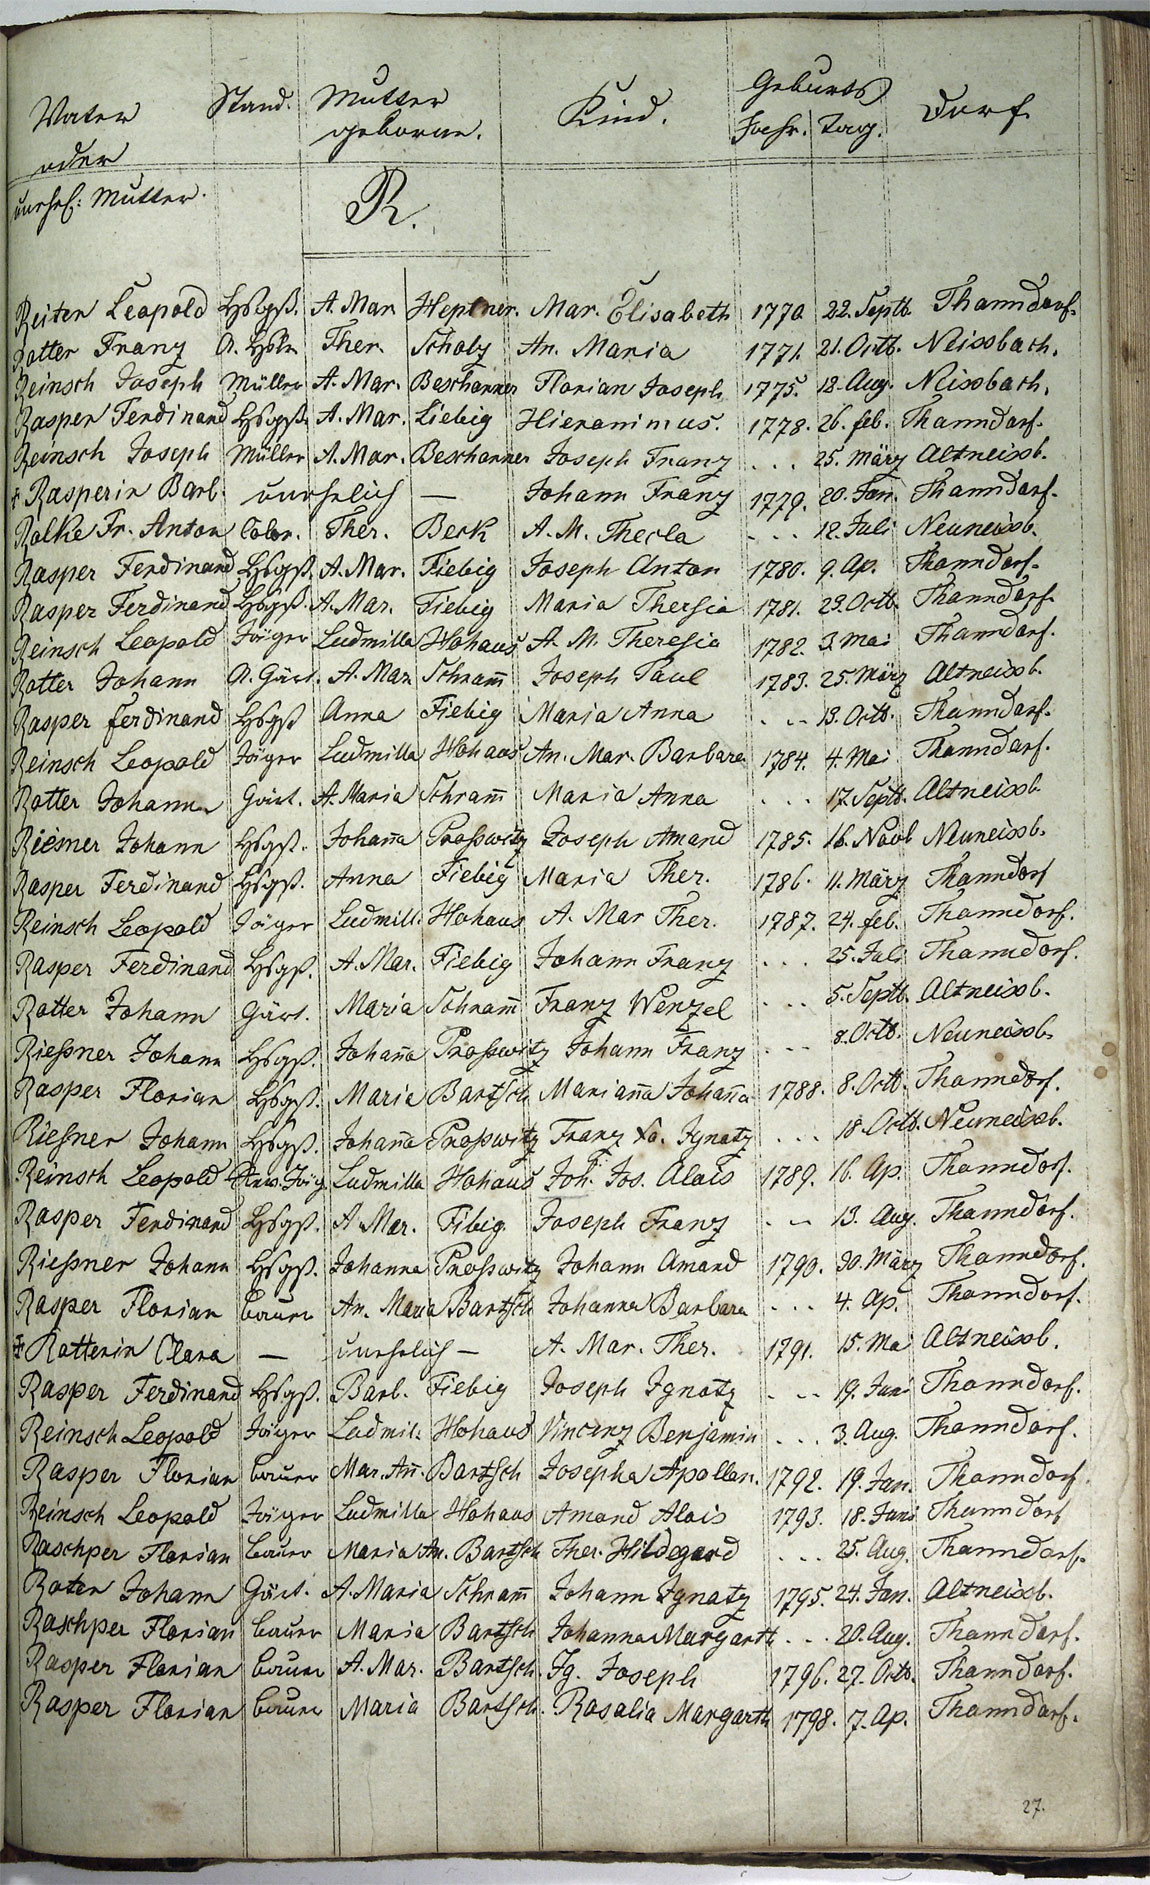 Vater Stand. Mutter Kind. Geburts Dorf.
oder geborne. Jahr. Tag.
unehl: Mutter.
R.
Reiter Leopold Hßgß. A. Mar. Heptner. Mar. Elisabeth 1770. 22. Septb. Thanndorf.
Rotter Franz A. Ther. Scholz An. Maria 1771. 21. Octb. Neissbach.
Reinsch Joseph Müller A. Mar. Beschorner Florian Joseph 1775. 18. Aug. Neissbach.
Rasper Ferdinand Hßgß. A. Mar. Liebig Hieronimus. 1778. 26. feb. Thanndorf.
Reinsch Joseph Müller A. Mar. Beschorner Joseph Franz . . . 25. März Altneissb.
‡ Rasperin Barb. unehelich — Johann Franz 1779. 20. Jan. Thanndorf.
Rolke Fr. Anton Color. Ther. Berk A. M. Thecla . . . 12. Juli Neuneissb.
Rasper Ferdinand Hßgß. A. Mar. Fiebig Joseph Anton 1780. 9. Ap. Thanndorf.
Rasper Ferdinand Hßgß. A. Mar. Fiebig Maria Thersia 1781. 29. Octb. Thanndorf.
Reinsch Leopold Jäger Ludmilla Hohaus A. M. Theresia 1782. 3. Mai Thanndorf.
Rotter Johann A. Gärt. A. Mar. Schram̄ Joseph Paul 1783. 25. März Altneissb.
Rasper Ferdinand Hßgß Anna Fiebig Maria Anna . . . 13. Octb. Thanndorf.
Reinsch Leopold Jäger Ludmilla Hohaus An. Mar. Barbara 1784. 4. Mai Thanndorf.
Rotter Johann Gärt. A. Maria Schram̄ Maria Anna . . . 17. Septb. Altneissb.
Riesner Johann Hßgß. Johan̄a Proßwitz Joseph Amand 1785. 16. Novb Neuneissb.
Rasper Ferdinand Hßgß. Anna Fiebig Maria Ther. 1786. 11. März Thanndorf
Reinsch Leopold Jäger Ludmill: Hohaus A. Mar Ther. 1787. 24. feb. Thanndorf.
Rasper Ferdinand Hßgß. A. Mar. Fiebig Johann Franz . . . 25. Juli Thanndorf.
Rotter Johann Gärt. Maria Schram̄ Franz Wenzel . . . 5. Septb. Altneissb.
Rießner Johann Hßgß. Johan̄a Proßwitz Johann Franz . . . 8. Octb. Neuneissb.
Rasper Florian Hßgß. Maria Bartsch Marian̄a Johan̄a 1788. 8. Octb. Thanndorf.
Rießner Johann Hßgß. Johan̄a Proßwitz Franz Xa. Ignatz . . . 18. Octb. Neuneissb.
Reinsch Leopold Jäg. Ludmilla Hohaus Joh. Jos. Alois 1789. 16. Ap. Thanndorf.
Rasper Ferdinand Hßgß. A. Mar. Fibig Joseph Franz . . . 13. Aug. Thanndorf.
Rießner Johann Hßgß. Johanna Proßwitz Johann Amand 1790. 30. März Thanndorf.
Rasper Florian bauer An. Maria Bartsch Johanna Barbara . . . 4. Ap. Thanndorf.
‡ Rotterin Clara — unehelich — A. Mar. Ther. 1791. 15. Mai Altneissb.
Rasper Ferdinand Hßgß. Barb. Fiebig Joseph Ignatz . . . 19. Juni Thanndorf.
Reinsch Leopold Jäger Ludmil: Hohaus Vincenz Benjamin . . . 3. Aug. Thanndorf.
Rasper Florian bauer Mar. An̄. Bartsch Josepha Apollon. 1792. 19. Jan. Thanndorf
Reinsch Leopold Jäger Ludmilla Hohaus Amand Alois 1793. 18. Juni Thanndorf
Raschper Florian bauer Maria An. Bartsch Ther. Hildegard . . . 25. Aug. Thanndorf.
Roter Johann Gärt. A. Maria Schram̄ Johann Ignatz 1795. 24. Jan. Altneissb.
Raschper Florian bauer Maria Bartsch Johanna Margarth . . . 20. Aug. Thanndorf.
Rasper Florian bauer A. Mar. Bartsch. Ig. Joseph 1796. 27. Octb. Thanndorf.
Rasper Florian bauer Maria Bartsch. Rosalia Margarth 1798. 7. Ap. Thanndorf.
27.